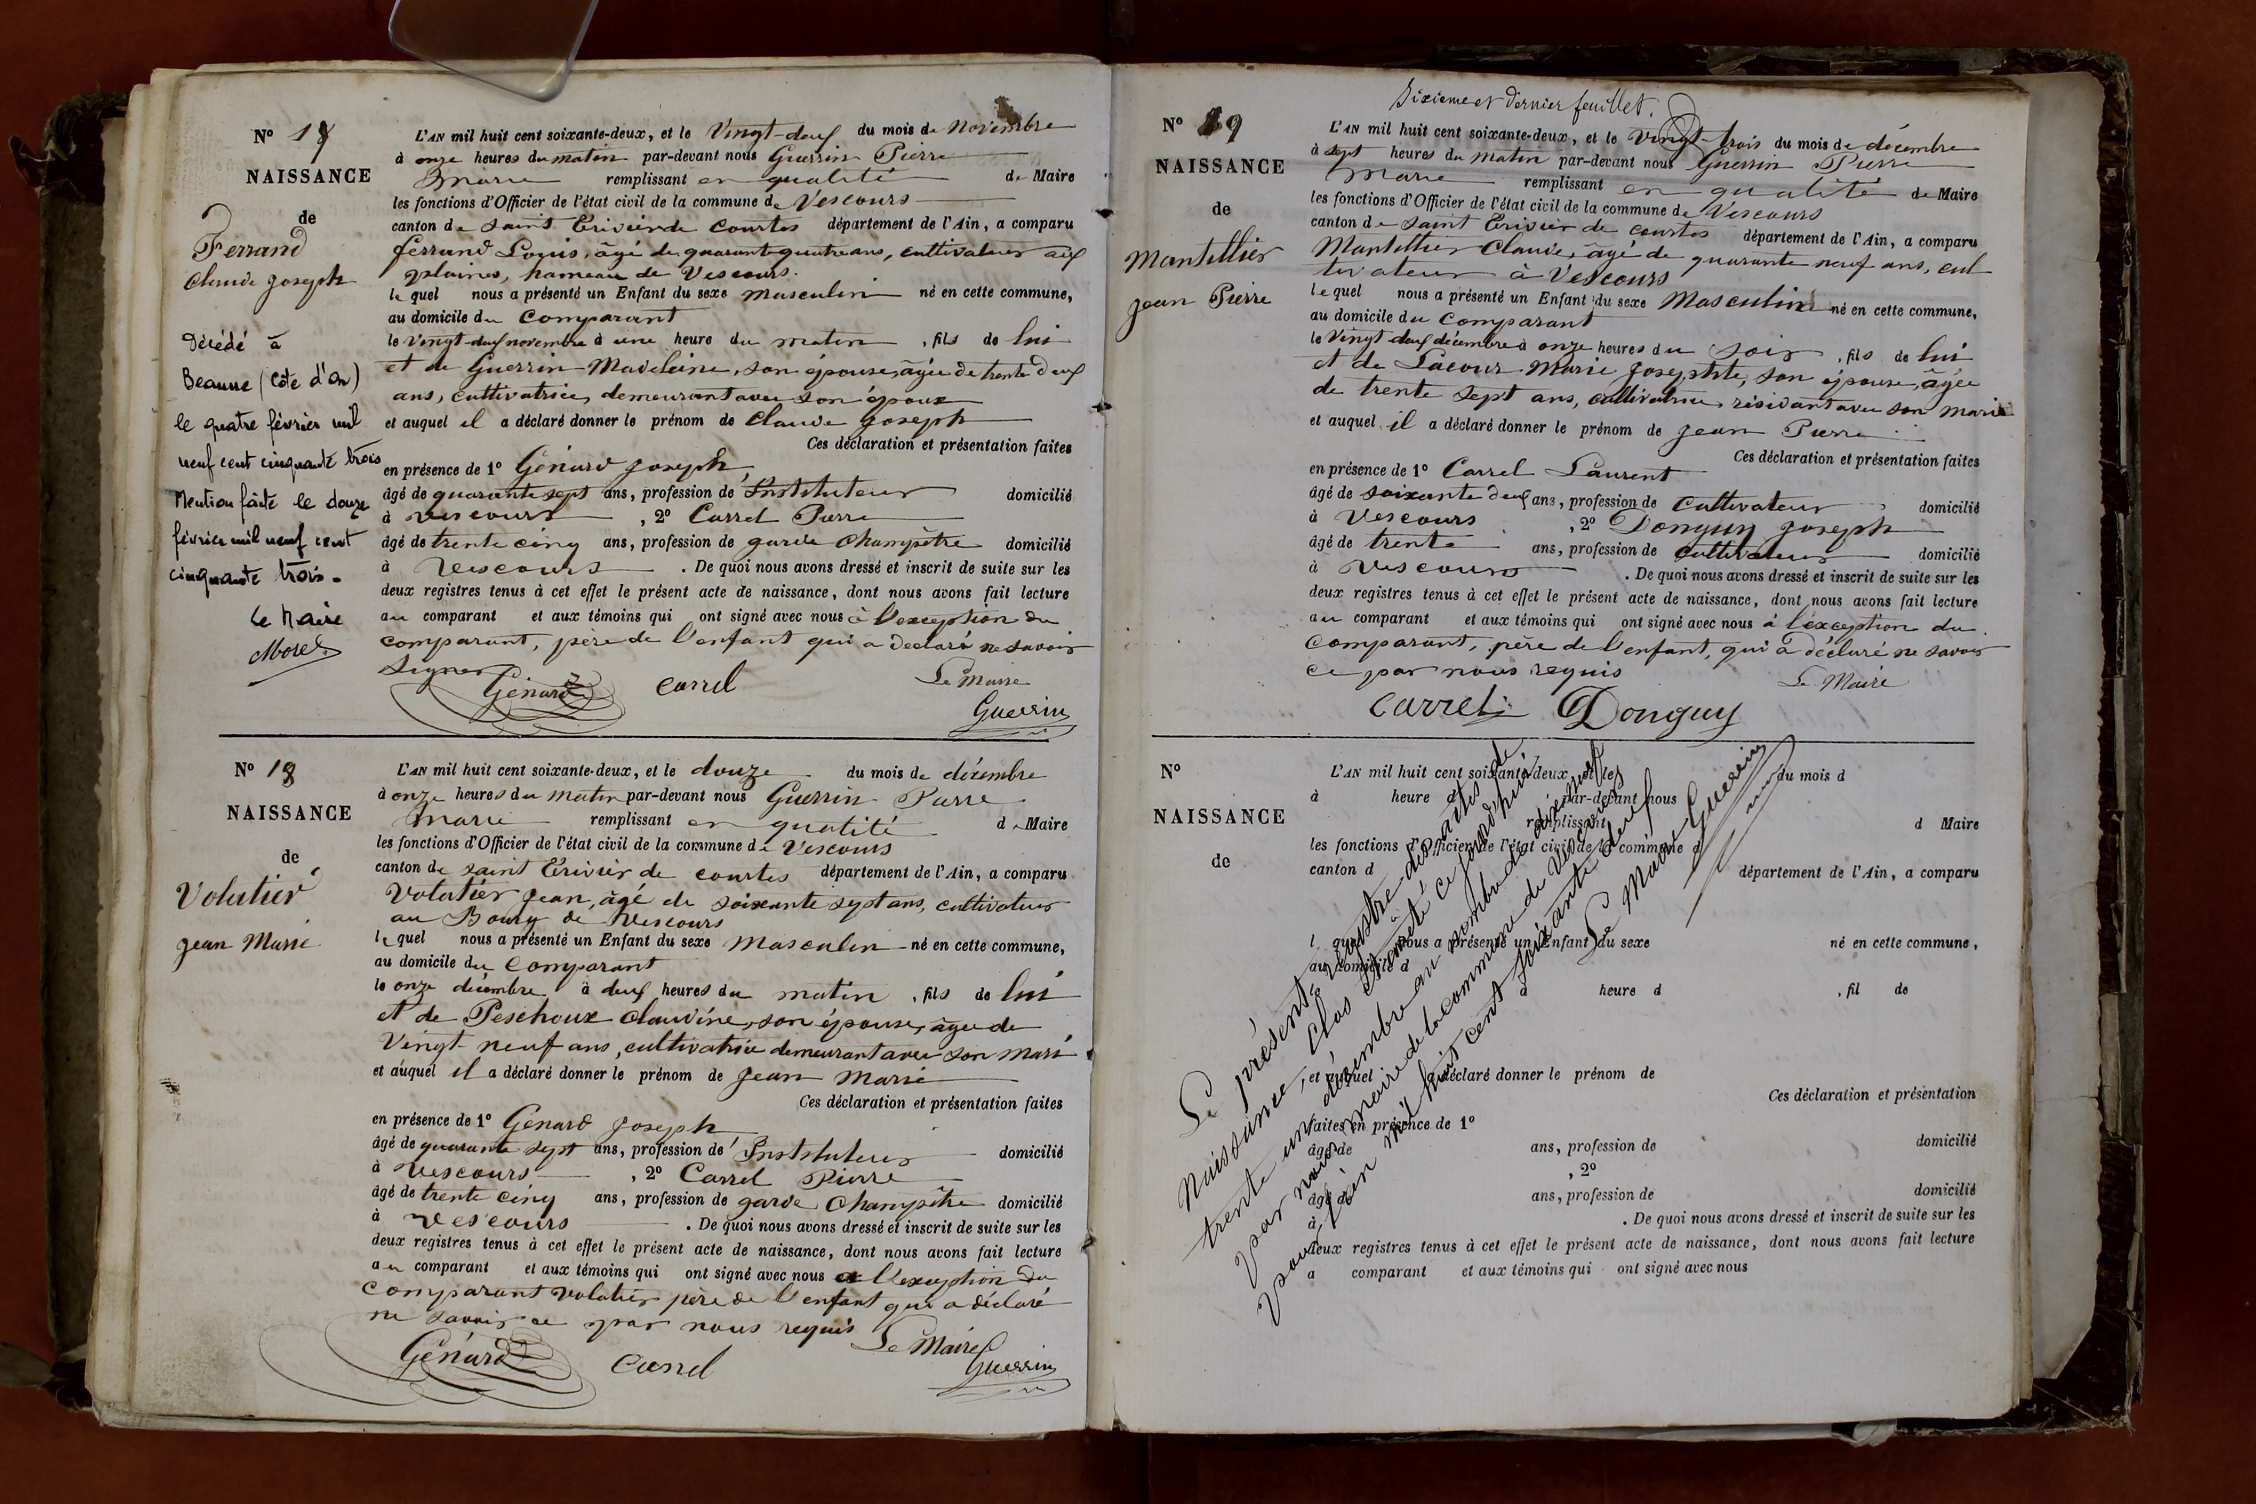 N° 17
NAISSANCE
de
Ferrand
Claude Joseph
Décédé à
Beaune (Côte d'Or)
le quatre février mil
neuf cent cinquante trois
Mention faite le douze
février mil neuf cent
cinquante trois.
Le Maire
Morel
L'AN mil huit cent soixante-deux, et le Vingt-deux du mois de Novembre
à onze heures du matin par-devant nous Guerrin Pierre
Marie remplissant en qualité de Maire
les fonctions d'Officier de l'état civil de la commune de Vescours
canton de Saint Trivier de Courtes département de l'Ain, a comparu
ferrand Louis, âgé de quarante quatre ans, cultivateur aux
plaines, hameau de Vescours.
le quel nous a présenté un Enfant du sexe masculin né en cette commune,
au domicile du Comparant
le vingt-deux novembre à une heure du matin, fils de lui
et de Guerrin Madeleine, son épouse, âgée de trente deux
ans, cultivatrice, demeurant avec son époux
et auquel il a déclaré donner le prénom de Claude Joseph
Ces déclaration et présentation faites
en présence de 1° Génard Joseph
âgé de quarante sept ans, profession d'Instituteur domicilié
à Vescours, 2° Carrel Pierre
âgé de trente cinq ans, profession de garde Champêtre domicilié
à Vescours. De quoi nous avons dressé et inscrit de suite sur les
deux registres tenus à cet effet le présent acte de naissance, dont nous avons fait lecture
au comparant et aux témoins qui ont signé avec nous à l'exception du
comparant, père de l'enfant qui a déclaré ne savoir
signer
Génard Carrel Le Maire
Guerrin
N° 18
NAISSANCE
de
Volatier
Jean Marie
L'AN mil huit cent soixante-deux, et le douze du mois de décembre
à onze heures du matin par-devant nous Guerrin Pierre
Marie remplissant en qualité de Maire
les fonctions d'Officier de l'état civil de la commune de Vescours
canton de Saint Trivier de courtes département de l'Ain, a comparu
Volatier Jean, âgé de soixante sept ans, cultivateur
au Bourg de Vescours
le quel nous a présenté un Enfant du sexe Masculin né en cette commune,
au domicile du Comparant
le onze décembre à deux heures du matin, fils de lui
et de Peschoux Claudine, son épouse, âgée de
Vingt neuf ans, cultivatrice demeurant avec son mari
et auquel il a déclaré donner le prénom de Jean Marie
Ces déclaration et présentation faites
en présence de 1° Génard Joseph
âgé de quarante sept ans, profession d'Instituteur domicilié
à Vescours, 2° Carrel Pierre
âgé de trente cinq ans, profession de garde Champêtre domicilié
à Vescours. De quoi nous avons dressé et inscrit de suite sur les
deux registres tenus à cet effet le présent acte de naissance, dont nous avons fait lecture
au comparant et aux témoins qui ont signé avec nous à l'exception du
comparant Volatier père de l'enfant qui a déclaré
ne savoir ce par nous requis
Génard Carrel Le Maire
Guerrin
Sixieme et dernier feuillet.
N° 19
NAISSANCE
de
Mantellier
Jean Pierre
L'AN mil huit cent soixante-deux, et le Vingt-trois du mois de décembre
à sept heures du matin par-devant nous Guerrin Pierre
Marie remplissant en qualité de Maire
les fonctions d'Officier de l'état civil de la commune de Vescours
canton de Saint Trivier de courtes département de l'Ain, a comparu
Mantellier Claude, âgé de quarante neuf ans, cul
tivateur à Vescours
le quel nous a présenté un Enfant du sexe Masculin né en cette commune,
au domicile du Comparant
le Vingt-deux décembre à onze heures du soir, fils de lui
et de Lacour Marie Josephte, son épouse, âgée
de trente sept ans, cultivatrice, résidant avec son mari
et auquel il a déclaré donner le prénom de Jean Pierre
Ces déclaration et présentation faites
en présence de 1° Carrel Laurent
âgé de soixante deux ans, profession de cultivateur domicilié
à Vescours, 2° Donguy Joseph
âgé de trente ans, profession de cultivateur domicilié
à Vescours. De quoi nous avons dressé et inscrit de suite sur les
deux registres tenus à cet effet le présent acte de naissance, dont nous avons fait lecture
au comparant et aux témoins qui ont signé avec nous à l'exception du
comparant, père de l'enfant, qui a déclaré ne savoir
ce par nous requis Le Maire
Carrel Donguy
N°
NAISSANCE
de
L'AN mil huit cent soixante-deux, et le du mois d
à heure d par-devant nous
remplissant d Maire
les fonctions d'Officier de l'état civil de la commune d
canton d département de l'Ain, a comparu
l quel nous a présenté un Enfant du sexe né en cette commune,
au domicile d
à heure d , fil de
et auquel a déclaré donner le prénom de
Ces déclaration et présentation
faites en présence de 1°
âgé de ans, profession de domicilié
à , 2°
âgé de ans, profession de domicilié
à . De quoi nous avons dressé et inscrit de suite sur les
deux registres tenus à cet effet le présent acte de naissance, dont nous avons fait lecture
a comparant et aux témoins qui ont signé avec nous
Le présent registre des actes de
Naissance, clos et arrêté ce jourd'hui
trente un décembre au nombre de dix neuf
par nous maire de la commune de Vescours
pour l'an mil huit cent soixante deux
Le Maire Guerrin